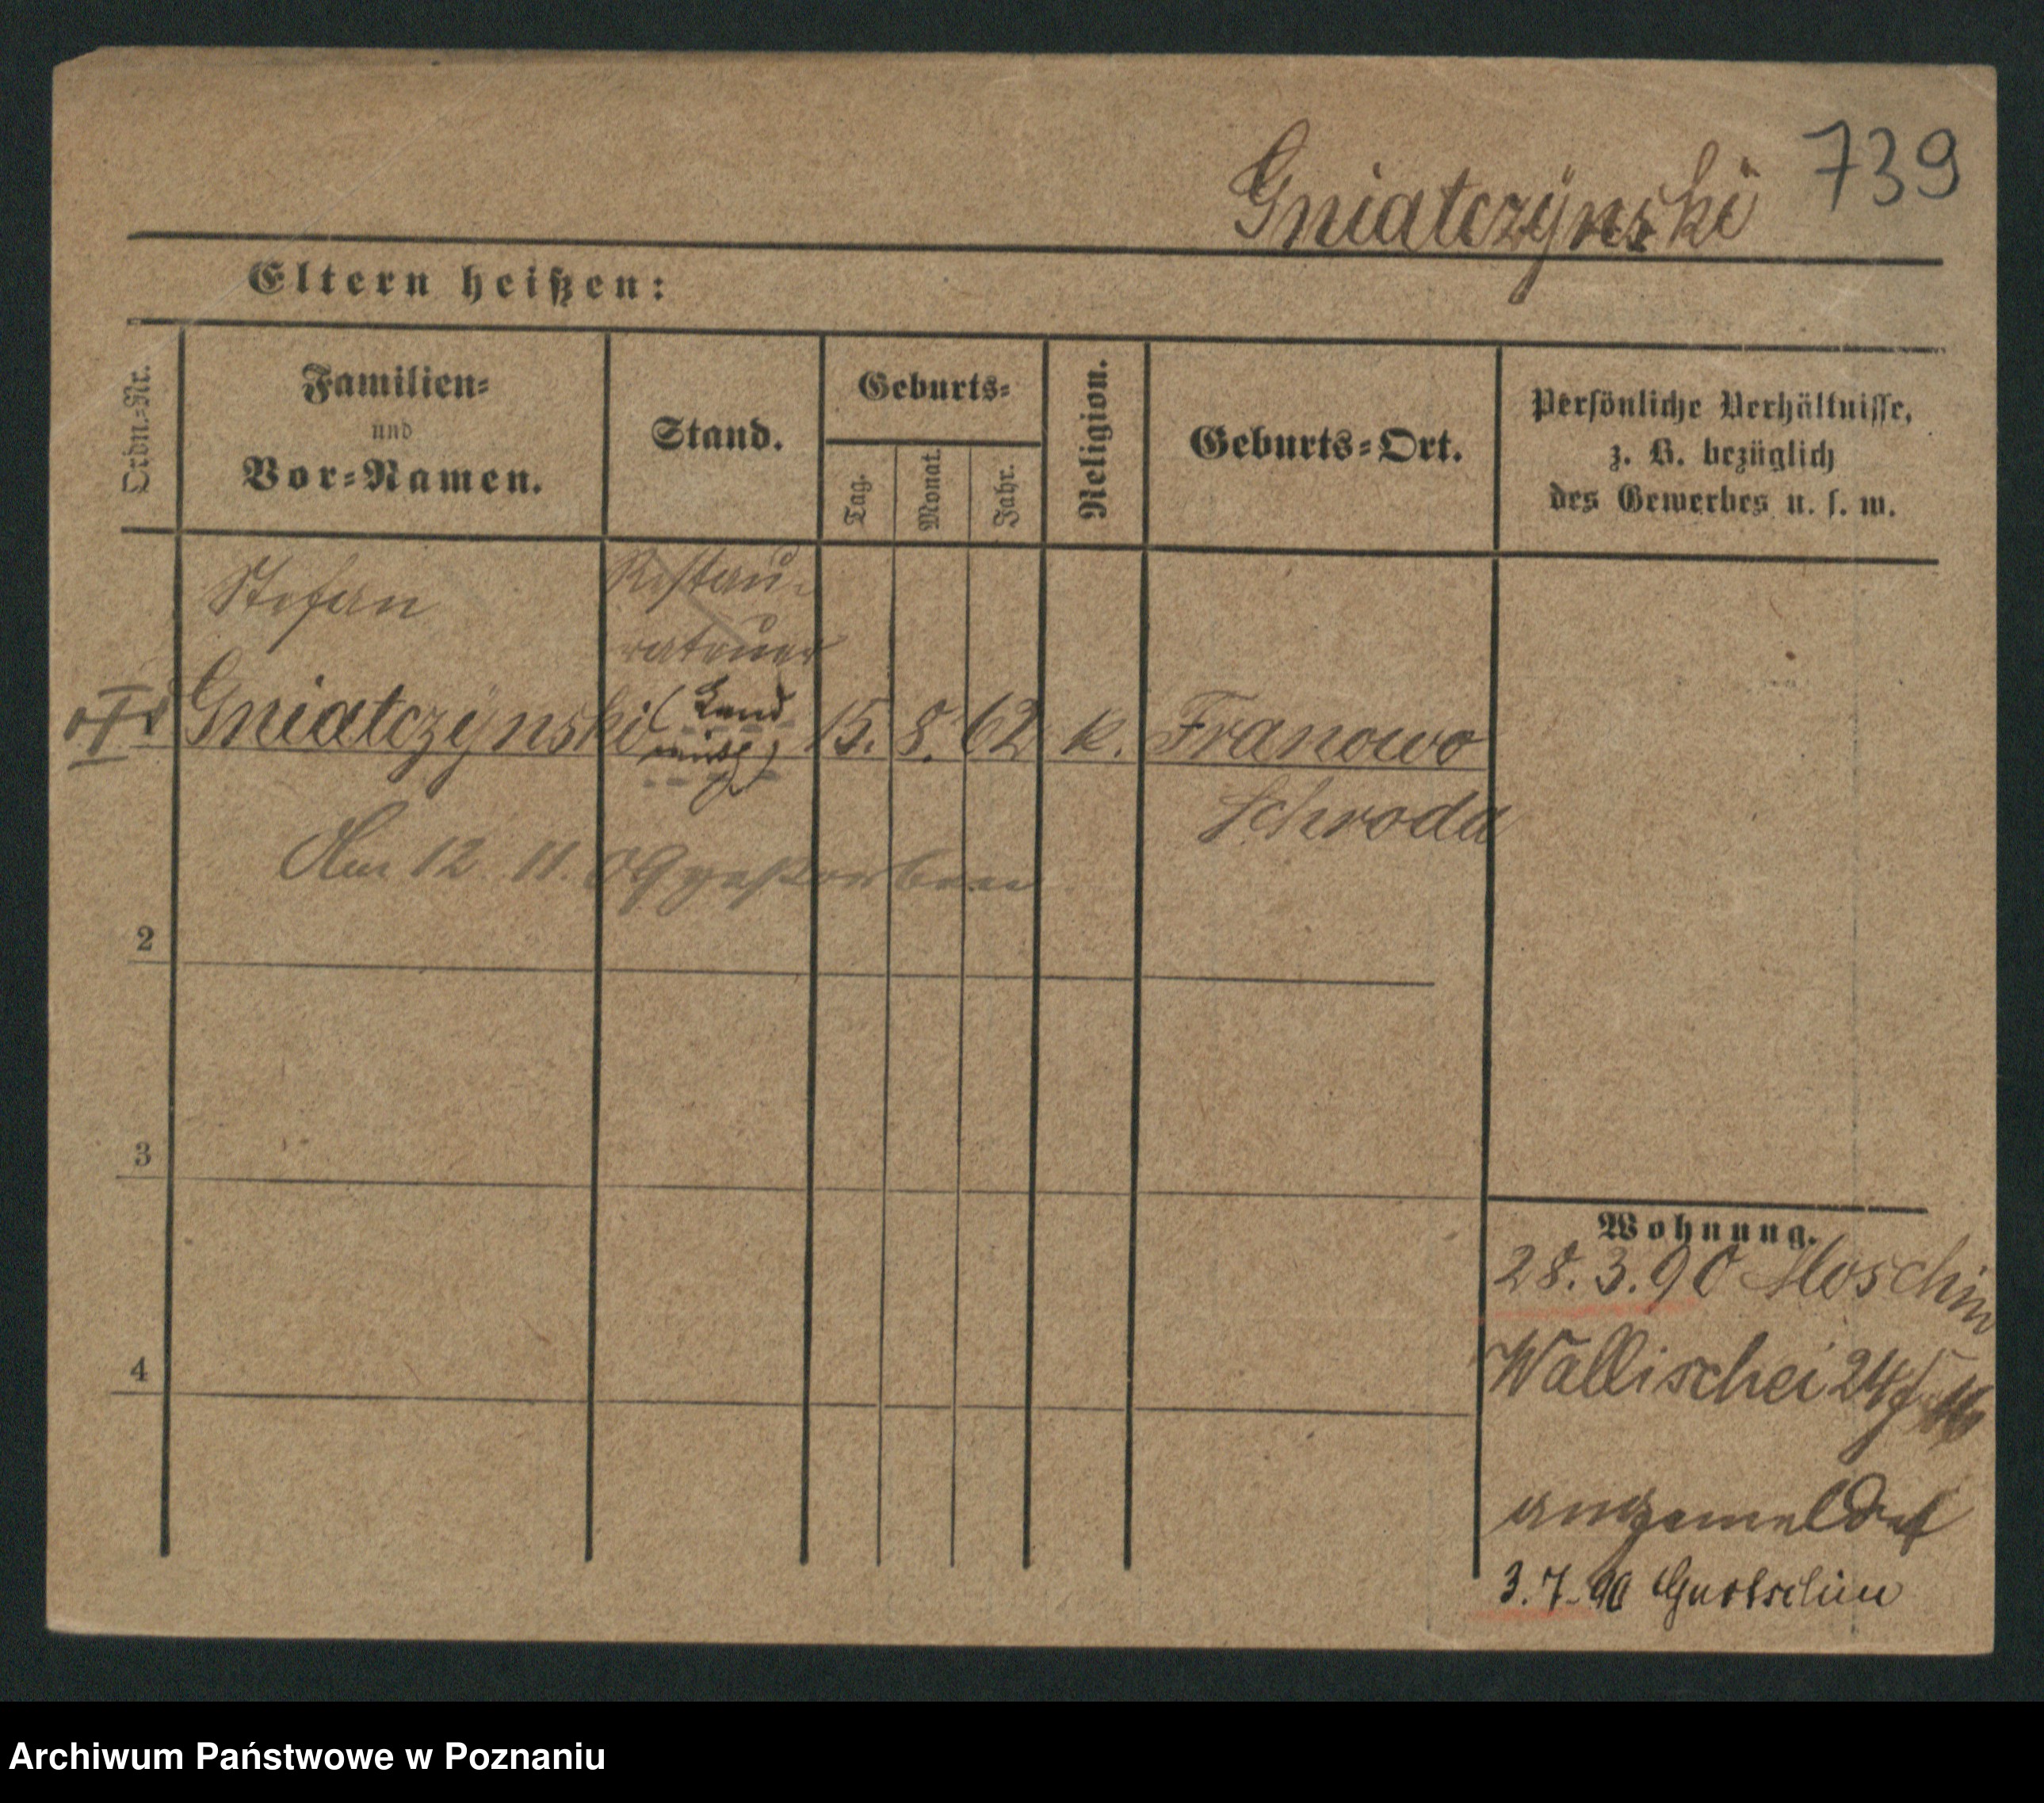 739
Gniatczynski
Eltern heißen:
Ordn.-Nr.
Familien-
und
Vor-Namen.
Stand.
Geburts-
Tag.
Monat.
Jahr.
Religion.
Geburts-Ort.
Persönliche Verhältnisse,
z. B. bezüglich
des Gewerbes u. s. w.
Stefan
Restau-
rateuer
Gniatczynski
(Land
wirth)
15. 8. 62 k. Franowo
Schroda
Am 12. 11. 09 gestorben
2
3
4
Wohnung.
28. 3. 90 Moschin
Wallischei 24/
angemeldet
3. 7. 90 Gurtschin
Archiwum Państwowe w Poznaniu